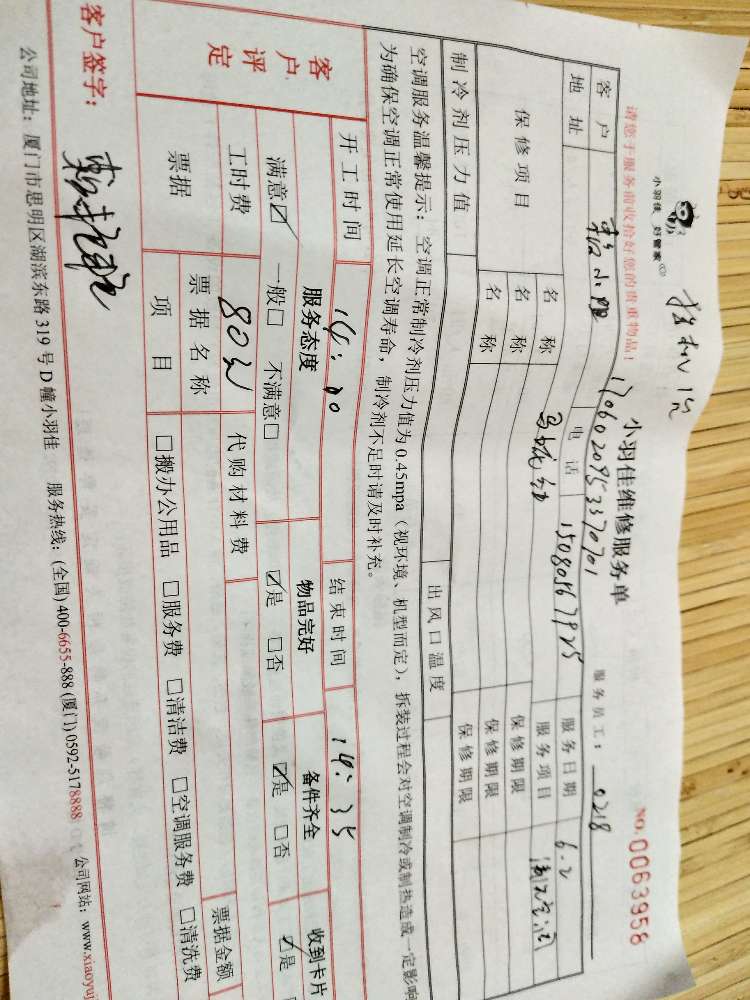 小羽佳 好管家
小羽佳维修服务单
NO.0063958
请您于服务前收拾好您的贵重物品！
1706020953370701
服务员工： 0218
客户
电话
15080567925
服务日期
6.2
地址
服务项目
保修项目
名称
保修期限
名称
保修期限
名称
保修期限
制冷剂压力值
出风口温度
空调服务温馨提示：空调正常制冷剂压力值为0.45mpa（视环境、机型而定），拆装过程会对空调制冷或制热造成一定影响
为确保空调正常使用延长空调寿命，制冷剂不足时请及时补充。
开工时间
14:00
结束时间
14:35
客户评定
服务态度
物品完好
备件齐全
收到卡片
满意☑ 一般□ 不满意□
☑是 □否
☑是 □否
☑是
工时费
80元
代购材料费
票据
票据名称
票据金额
项目
□搬办公用品 □服务费 □清洁费 □空调服务费 □清洗费
客户签字：
公司地址：厦门市思明区湖滨东路319号D幢小羽佳 服务热线：(全国)400-6655-888(厦门)0592-5178888 公司网站：www.xiaoyuj